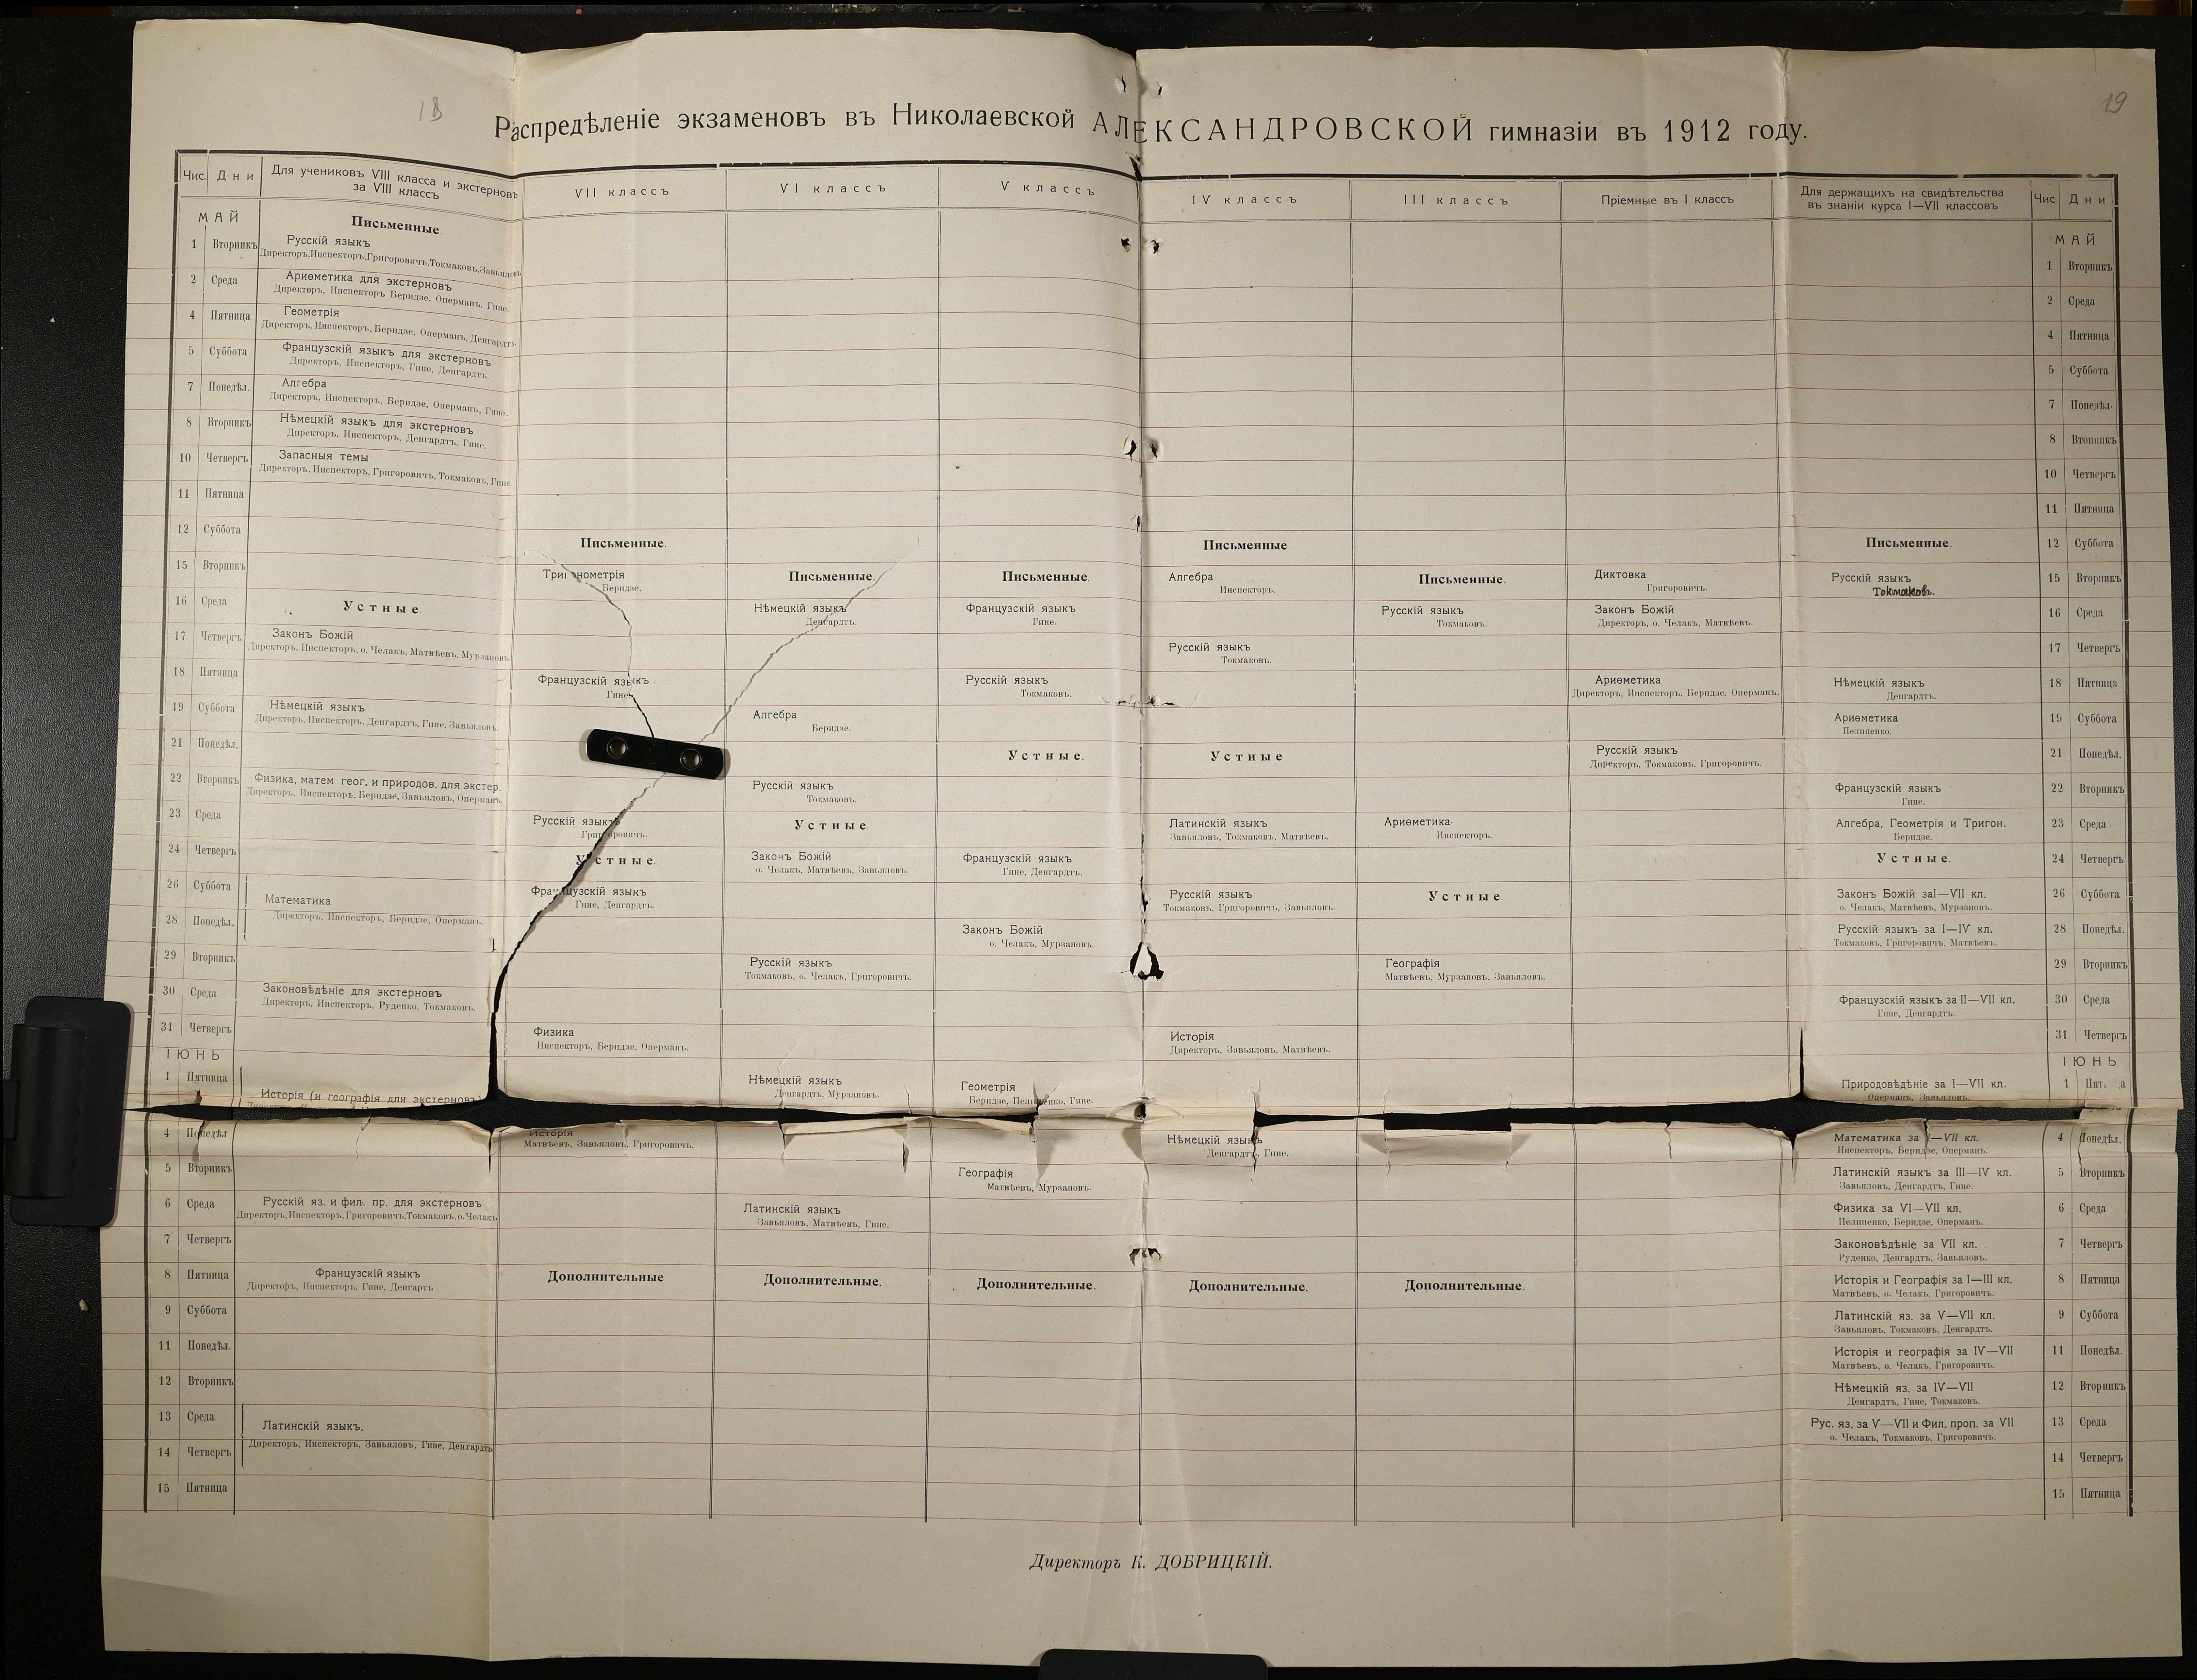 18
19
Распредѣленіе экзаменовъ въ Николаевской АЛЕКСАНДРОВСКОЙ гимназіи въ 1912 году.
Чис. Дни Для учениковъ VIII класса и экстерновъ за VIII классъ VII классъ VI классъ V классъ IV классъ III классъ Пріемные въ I классъ Для держащихъ на свидѣтельства въ знаніи курса I—VII классовъ Чис. Дни
МАЙ Письменные. МАЙ
1 Вторникъ Русскій языкъ 1 Вторникъ
Директоръ, Инспекторъ, Григоровичъ, Токмаковъ, Завьяловъ
2 Среда Ариѳметика для экстерновъ 2 Среда
Директоръ, Инспекторъ Беридзе, Оперманъ, Гине.
4 Пятница Геометрія 4 Пятница
Директоръ, Инспекторъ, Беридзе, Оперманъ, Денгардтъ
5 Суббота Французскій языкъ для экстерновъ 5 Суббота
Директоръ, Инспекторъ, Гине, Денгардтъ.
7 Понедѣл. Алгебра 7 Понедѣл.
Директоръ, Инспекторъ, Беридзе, Оперманъ, Гине.
8 Вторникъ Нѣмецкій языкъ для экстерновъ 8 Вторникъ
Директоръ, Инспекторъ, Денгардтъ, Гине.
10 Четвергъ Запасныя темы 10 Четвергъ
Директоръ, Инспекторъ, Григоровичъ, Токмаковъ, Гине
11 Пятница 11 Пятница
12 Суббота Письменные. Письменные Письменные. 12 Суббота
15 Вторникъ Тригонометрія Письменные. Письменные. Алгебра Письменные. Диктовка Русскій языкъ 15 Вторникъ
Беридзе. Инспекторъ. Григоровичъ. Токмаковъ.
16 Среда Устные. Нѣмецкій языкъ Французскій языкъ Русскій языкъ Законъ Божій 16 Среда
Денгардтъ. Гине. Токмаковъ. Директоръ, о. Челакъ, Матвѣевъ.
17 Четвергъ Законъ Божій Русскій языкъ 17 Четвергъ
Директоръ, Инспекторъ, о. Челакъ, Матвѣевъ, Мурзановъ. Токмаковъ.
18 Пятница Французскій языкъ Русскій языкъ Ариѳметика Нѣмецкій языкъ 18 Пятница
Гине. Токмаковъ. Директоръ, Инспекторъ, Беридзе, Оперманъ. Денгардтъ.
19 Суббота Нѣмецкій языкъ Алгебра Ариѳметика 19 Суббота
Директоръ, Инспекторъ, Денгардтъ, Гине, Завьяловъ. Беридзе. Пелипенко.
21 Понедѣл. Устные. Устные Русскій языкъ 21 Понедѣл.
Директоръ, Токмаковъ, Григоровичъ.
22 Вторникъ Физика, матем геог. и природов. для экстер. Русскій языкъ Французскій языкъ 22 Вторникъ
Директоръ, Инспекторъ, Беридзе, Завьяловъ, Оперманъ. Токмаковъ. Гине.
23 Среда Русскій языкъ Устные. Латинскій языкъ Ариѳметика Алгебра, Геометрія и Тригон. 23 Среда
Григоровичъ. Завьяловъ, Токмаковъ, Матвѣевъ. Инспекторъ. Беридзе.
24 Четвергъ Устные. Законъ Божій Французскій языкъ Устные. 24 Четвергъ
о. Челакъ, Матвѣевъ, Завьяловъ. Гине, Денгардтъ.
26 Суббота Математика Французскій языкъ Русскій языкъ Устные Законъ Божій за I—VII кл. 26 Суббота
Гине, Денгардтъ. Токмаковъ, Григоровичъ, Завьяловъ. о. Челакъ, Матвѣевъ, Мурзановъ.
28 Понедѣл. Директоръ, Инспекторъ, Беридзе, Оперманъ. Законъ Божій Русскій языкъ за I—IV кл. 28 Понедѣл.
о. Челакъ, Мурзановъ. Токмаковъ, Григоровичъ, Матвѣевъ.
29 Вторникъ Русскій языкъ Географія 29 Вторникъ
Токмаковъ, о. Челакъ, Григоровичъ. Матвѣевъ, Мурзановъ, Завьяловъ.
30 Среда Законовѣдѣніе для экстерновъ Французскій языкъ за II—VII кл. 30 Среда
Директоръ, Инспекторъ, Руденко, Токмаковъ. Гине, Денгардтъ.
31 Четвергъ Физика Исторія 31 Четвергъ
Инспекторъ, Беридзе, Оперманъ. Директоръ, Завьяловъ, Матвѣевъ.
ІЮНЬ ІЮНЬ
1 Пятница Исторія (и географія для экстерновъ) Нѣмецкій языкъ Геометрія Природовѣдѣніе за I—VII кл. 1
Денгардтъ, Мурзановъ. Беридзе, Пелипенко, Гине. Оперманъ, Завьяловъ.
4 Понедѣл Исторія Нѣмецкій языкъ Математика за I—VII кл. 4 Понедѣл.
Матвѣевъ, Завьяловъ, Григоровичъ. Денгардтъ, Гине. Инспекторъ, Беридзе, Оперманъ.
5 Вторникъ Географія Латинскій языкъ за III—IV кл. 5 Вторникъ
Матвѣевъ, Мурзановъ. Завьяловъ, Денгардтъ, Гине.
6 Среда Русскій яз. и фил. пр. для экстерновъ Латинскій языкъ Физика за VI—VII кл. 6 Среда
Директоръ, Инспекторъ, Григоровичъ, Токмаковъ, о. Челакъ Завьяловъ, Матвѣевъ, Гине. Пелипенко, Беридзе, Оперманъ.
7 Четвергъ Законовѣдѣніе за VII кл. 7 Четвергъ
Руденко, Денгардтъ, Завьяловъ.
8 Пятница Французскій языкъ Дополнительные Дополнительные. Дополнительные. Дополнительные. Дополнительные. Исторія и Географія за I—III кл. 8 Пятница
Директоръ, Инспекторъ, Гине, Денгартъ Матвѣевъ, о. Челакъ, Григоровичъ.
9 Суббота Латинскій яз. за V—VII кл. 9 Суббота
Завьяловъ, Токмаковъ, Денгардтъ.
11 Понедѣл. Исторія и географія за IV—VII 11 Понедѣл.
Матвѣевъ, о. Челакъ, Григоровичъ.
12 Вторникъ Нѣмецкій яз. за IV—VII 12 Вторникъ
Денгардтъ, Гине, Токмаковъ.
13 Среда Латинскій языкъ. Рус. яз. за V—VII и Фил. проп. за VII 13 Среда
о. Челакъ, Токмаковъ, Григоровичъ.
14 Четвергъ Директоръ, Инспекторъ, Завьяловъ, Гине, Денгардтъ 14 Четвергъ
15 Пятница 15 Пятница
Директоръ К. ДОБРИЦКІЙ.